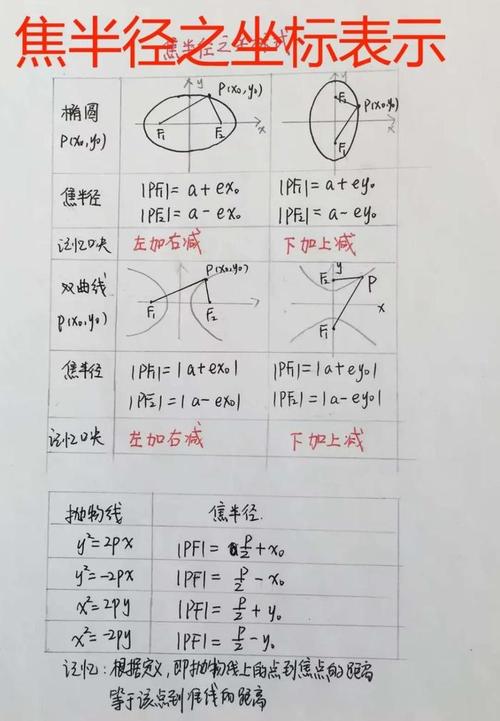 焦半径之坐标表示
焦半径之坐标式
椭圆
P(x₀,y₀)
y P(x₀,y₀)
F₁ F₂ x
y
F₂ P(x₀,y₀)
F₁
焦半径
|PF₁|= a+ex₀
|PF₂|= a-ex₀
|PF₁|= a+ey₀
|PF₂|= a-ey₀
记忆口决 左加右减 下加上减
双曲线
P(x₀,y₀)
P(x₀,y₀)
F₁ F₂
y
F₂ P
x
F₁
焦半径
|PF₁|=|a+ex₀|
|PF₂|=|a-ex₀|
|PF₁|=|a+ey₀|
|PF₂|=|a-ey₀|
记忆口决 左加右减 下加上减
抛物线 焦半径.
y²=2px |PF|= p/2+x₀
y²=-2px |PF|= p/2-x₀
x²=2py |PF|= p/2+y₀
x²=-2py |PF|= p/2-y₀
记忆:根据定义,即抛物线上的点到焦点的距离
等于该点到准线的距离